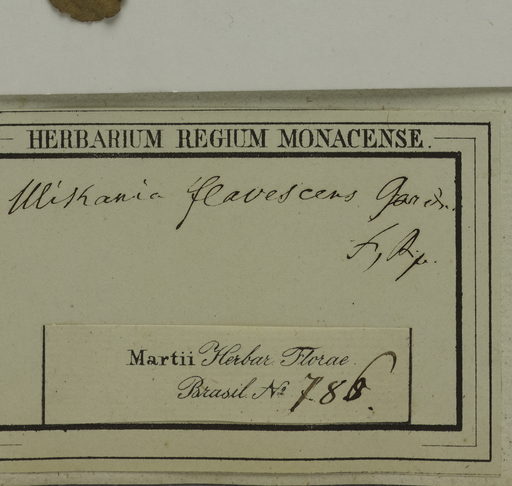 HERBARIUM REGIUM MONACENSE.
Mikania flavescens Gardn.
Martii Herbar. Florae
Brasil. No 786.